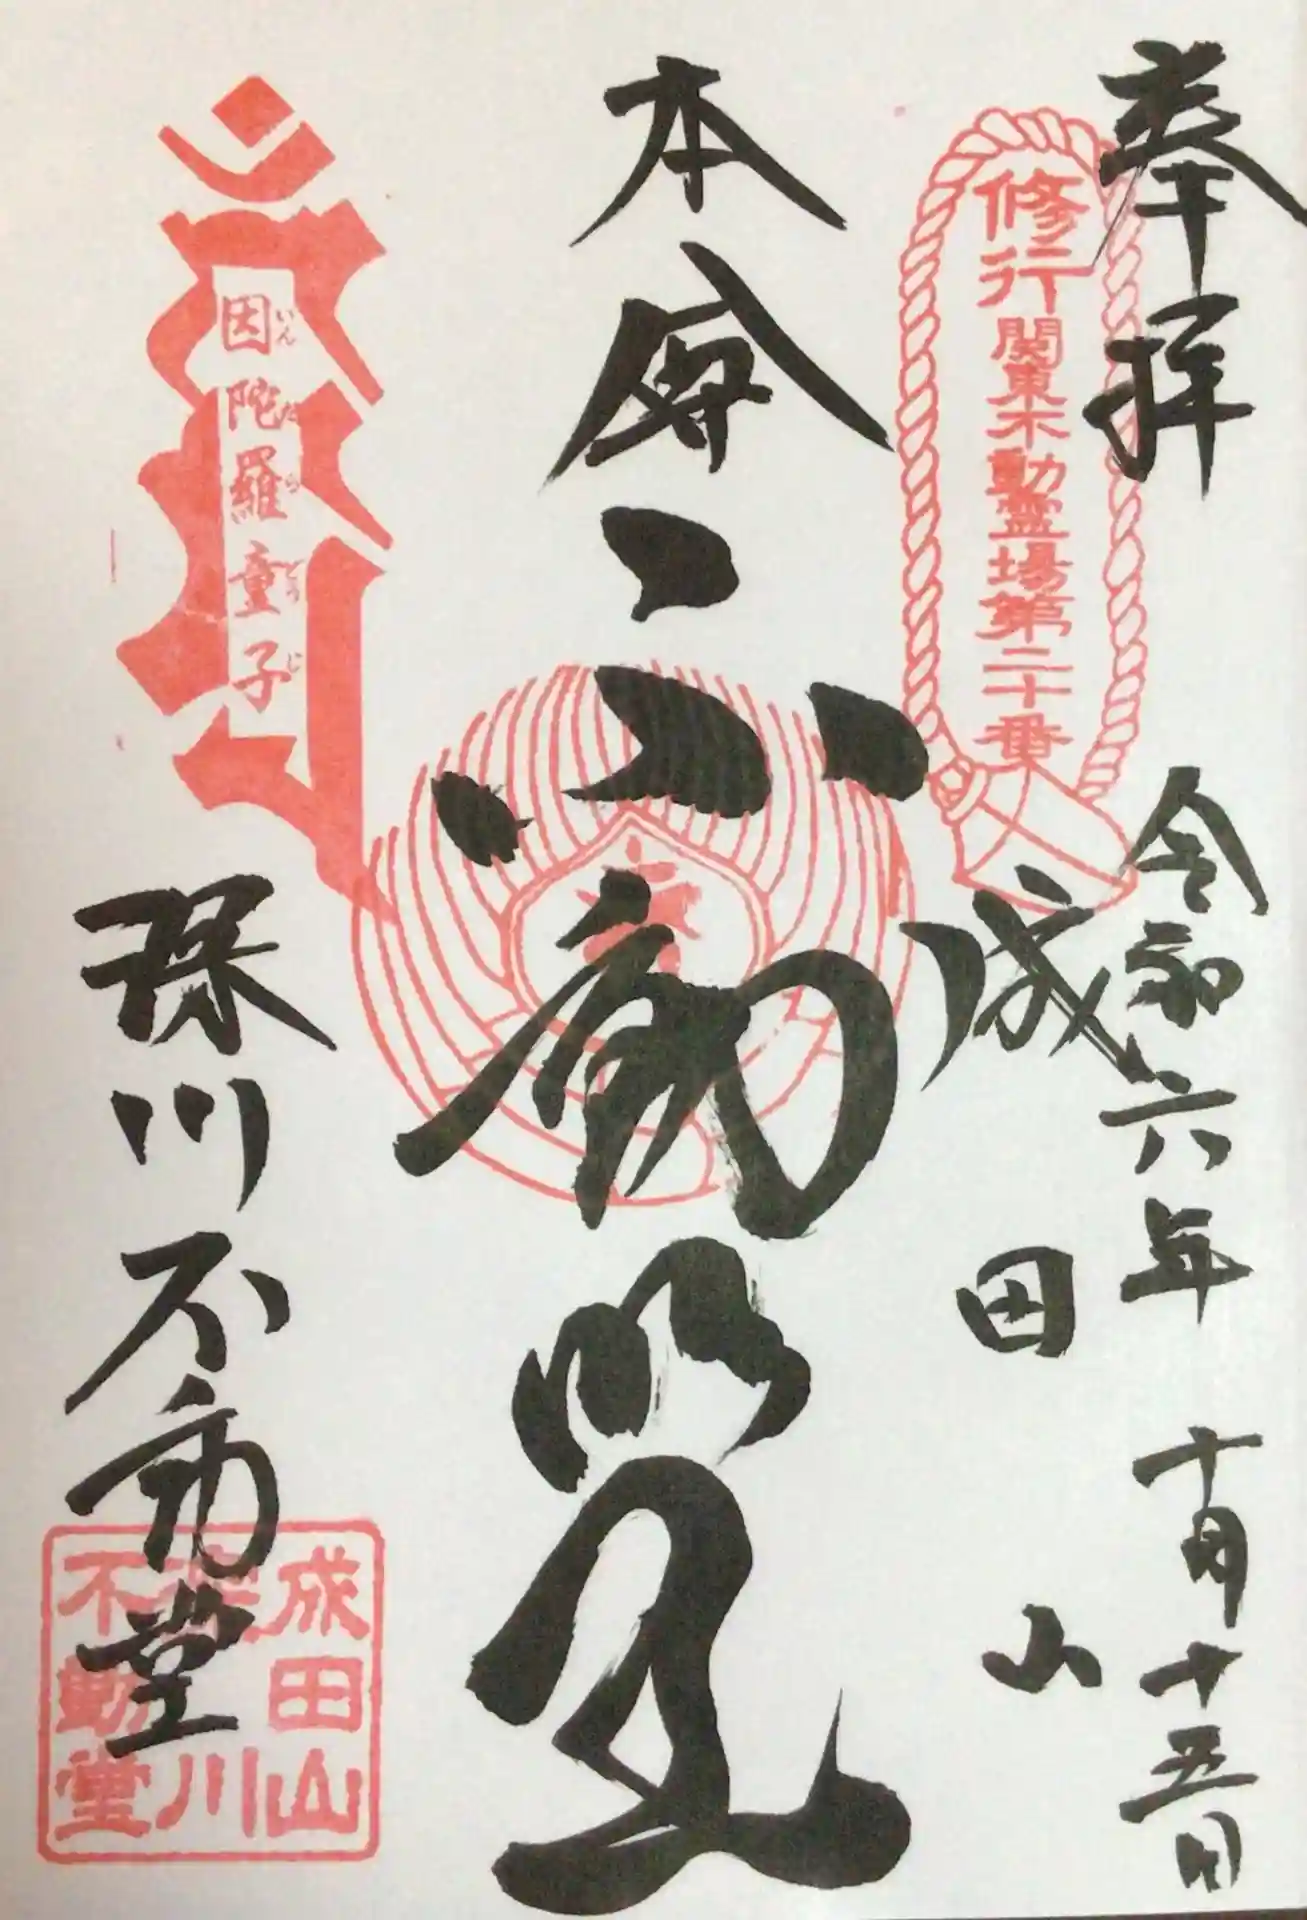 奉拝
令和六年十月十五日
修行関東不動霊場第二十番
成田山
本尊
不動明王
因陀羅童子
いんだらどうじ
深川不動堂
成田山
深川
不動堂